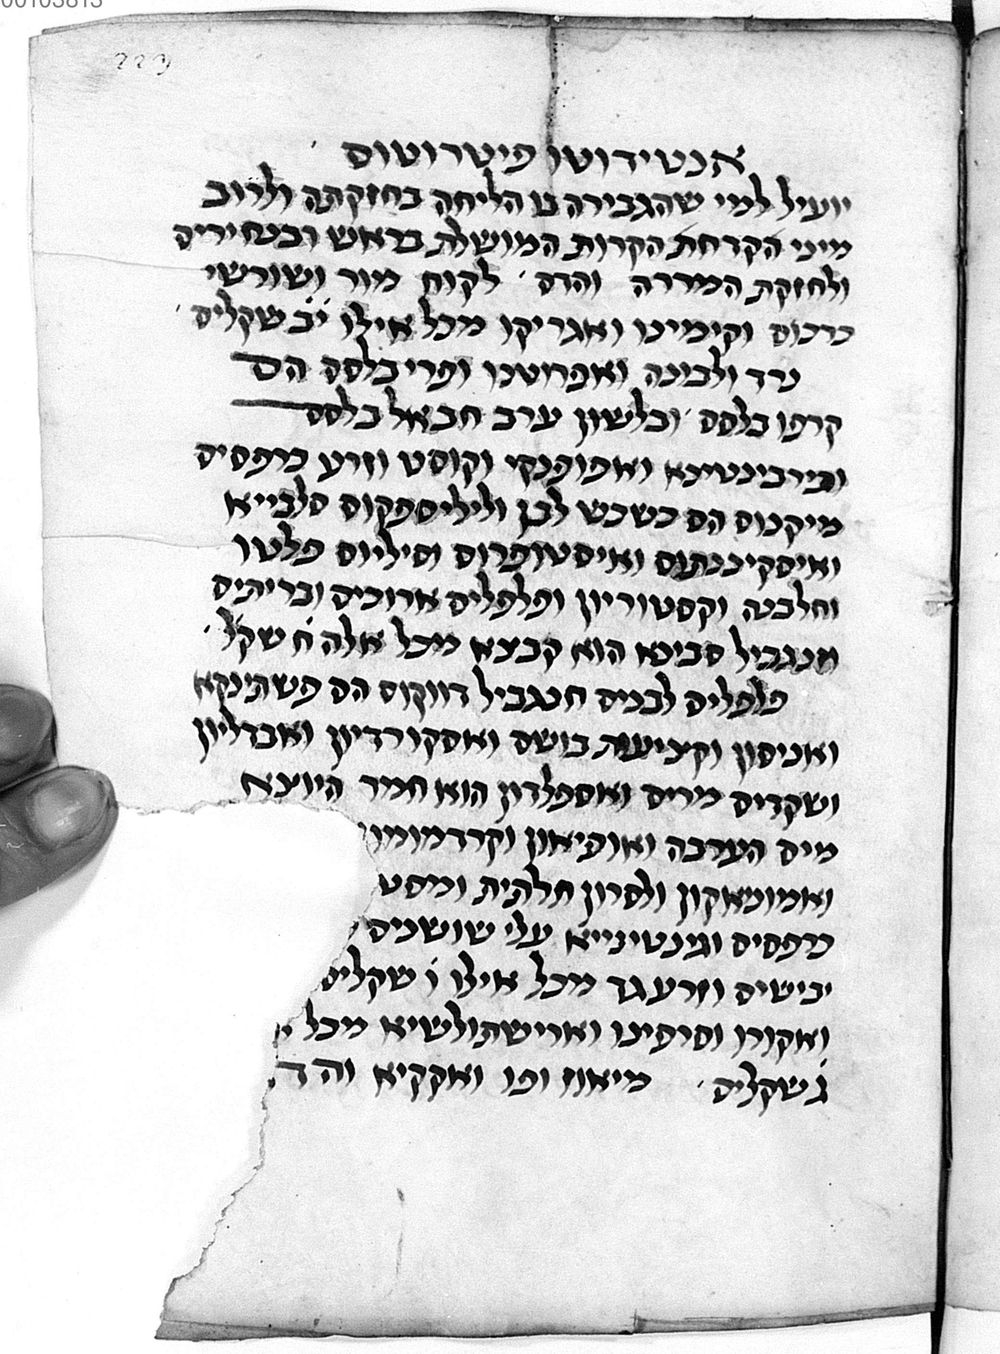 00103813
223
אנטידוטו פיטרוטוס
יועיל למי שהגבירה בו הליחה בחזקתה ולרוב
מיני הקדחת הקרות המושלת בראש ובנחיריה
ולחזקת המררה והדם לקוח מור ושורשי
כרכום וקימינו ואגריקו מכל אילו י̇ב̇ שקלים
נרד ולבונה ואפרוטנו ופרי בלסם הם
קרפו בלסם ובלשון ערב חבאל בלסם
וטירבינטינא ואפופנקי וקוסט וזרע כרפסים
מיקנוס הם כשכש לבן וליליספקוס סלבייא
ואיסקיננתוס ואיסטופרוס וסיליוס פלטו
וחלבנה וקסטוריון ופלפלים ארוכים ובריתים
מנגביל סבינא הוא קבצא מכל אלה ח̇ שקל
פלפלים לבנים חנגביל דווקוס הם פשתינקא
ואניסון וקציעות בושם ואסקורדיון ואבדליון
ושקדים מרים ואספלדון הוא חמר היוצא
מים הערבה ואופיאון וקרדמומו
ואמומאקון ולסרון חלתית ומסט
כרפסים וגינטינייא עלי שושנים
יבישים וזרע גד מכל אילו ו̇ שקלים
ואקורו וסרפינו וארישתולשיא מכל
ג̇ שקלים מיאוו ופו ואקקיא והד